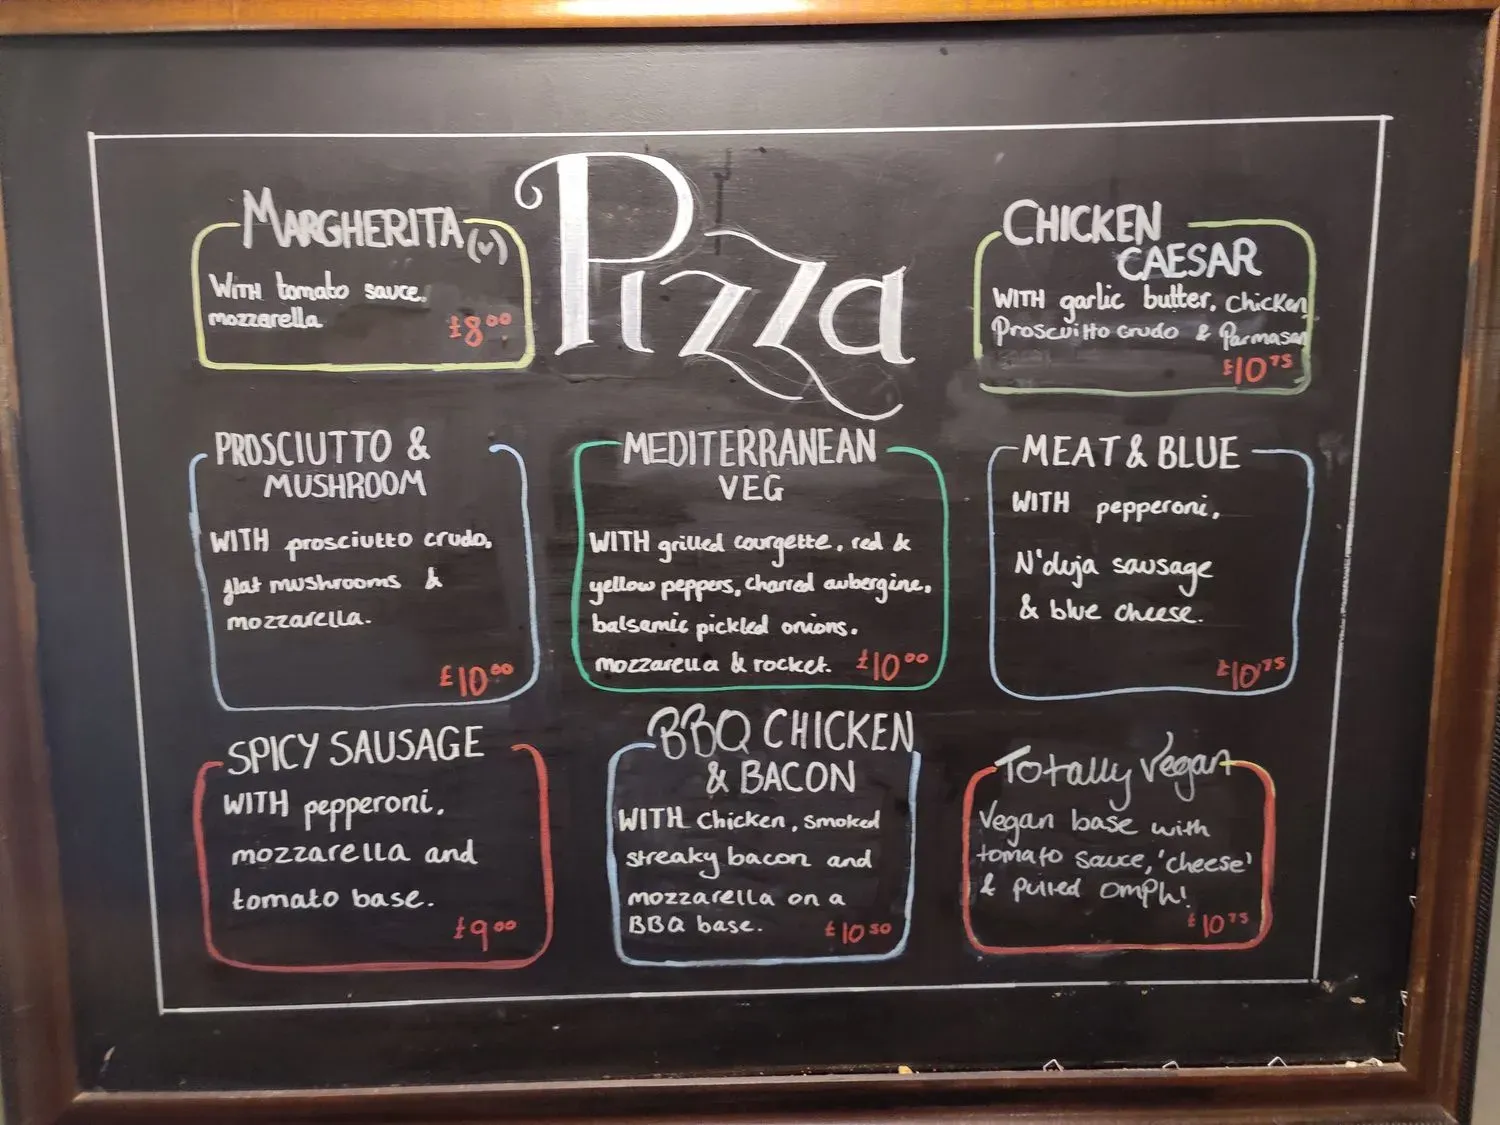 Pizza
MARGHERITA (v)
WITH tomato sauce.
mozzarella
£8.00
CHICKEN
CAESAR
WITH garlic butter, chicken
Proscuitto crudo & Parmasan
£10.75
PROSCIUTTO &
MUSHROOM
WITH prosciutto crudo,
flat mushrooms &
mozzarella.
£10.00
MEDITERRANEAN
VEG
WITH grilled courgette, red &
yellow peppers, charred aubergine,
balsamic pickled onions,
mozzarella & rocket. £10.00
MEAT & BLUE
WITH pepperoni,
N'duja sausage
& blue cheese.
£10.75
SPICY SAUSAGE
WITH pepperoni,
mozzarella and
tomato base.
£9.00
BBQ CHICKEN
& BACON
WITH Chicken, smoked
streaky bacon and
mozzarella on a
BBQ base. £10.50
Totally Vegan
Vegan base with
tomato sauce, 'cheese'
& pulled omph!
£10.75